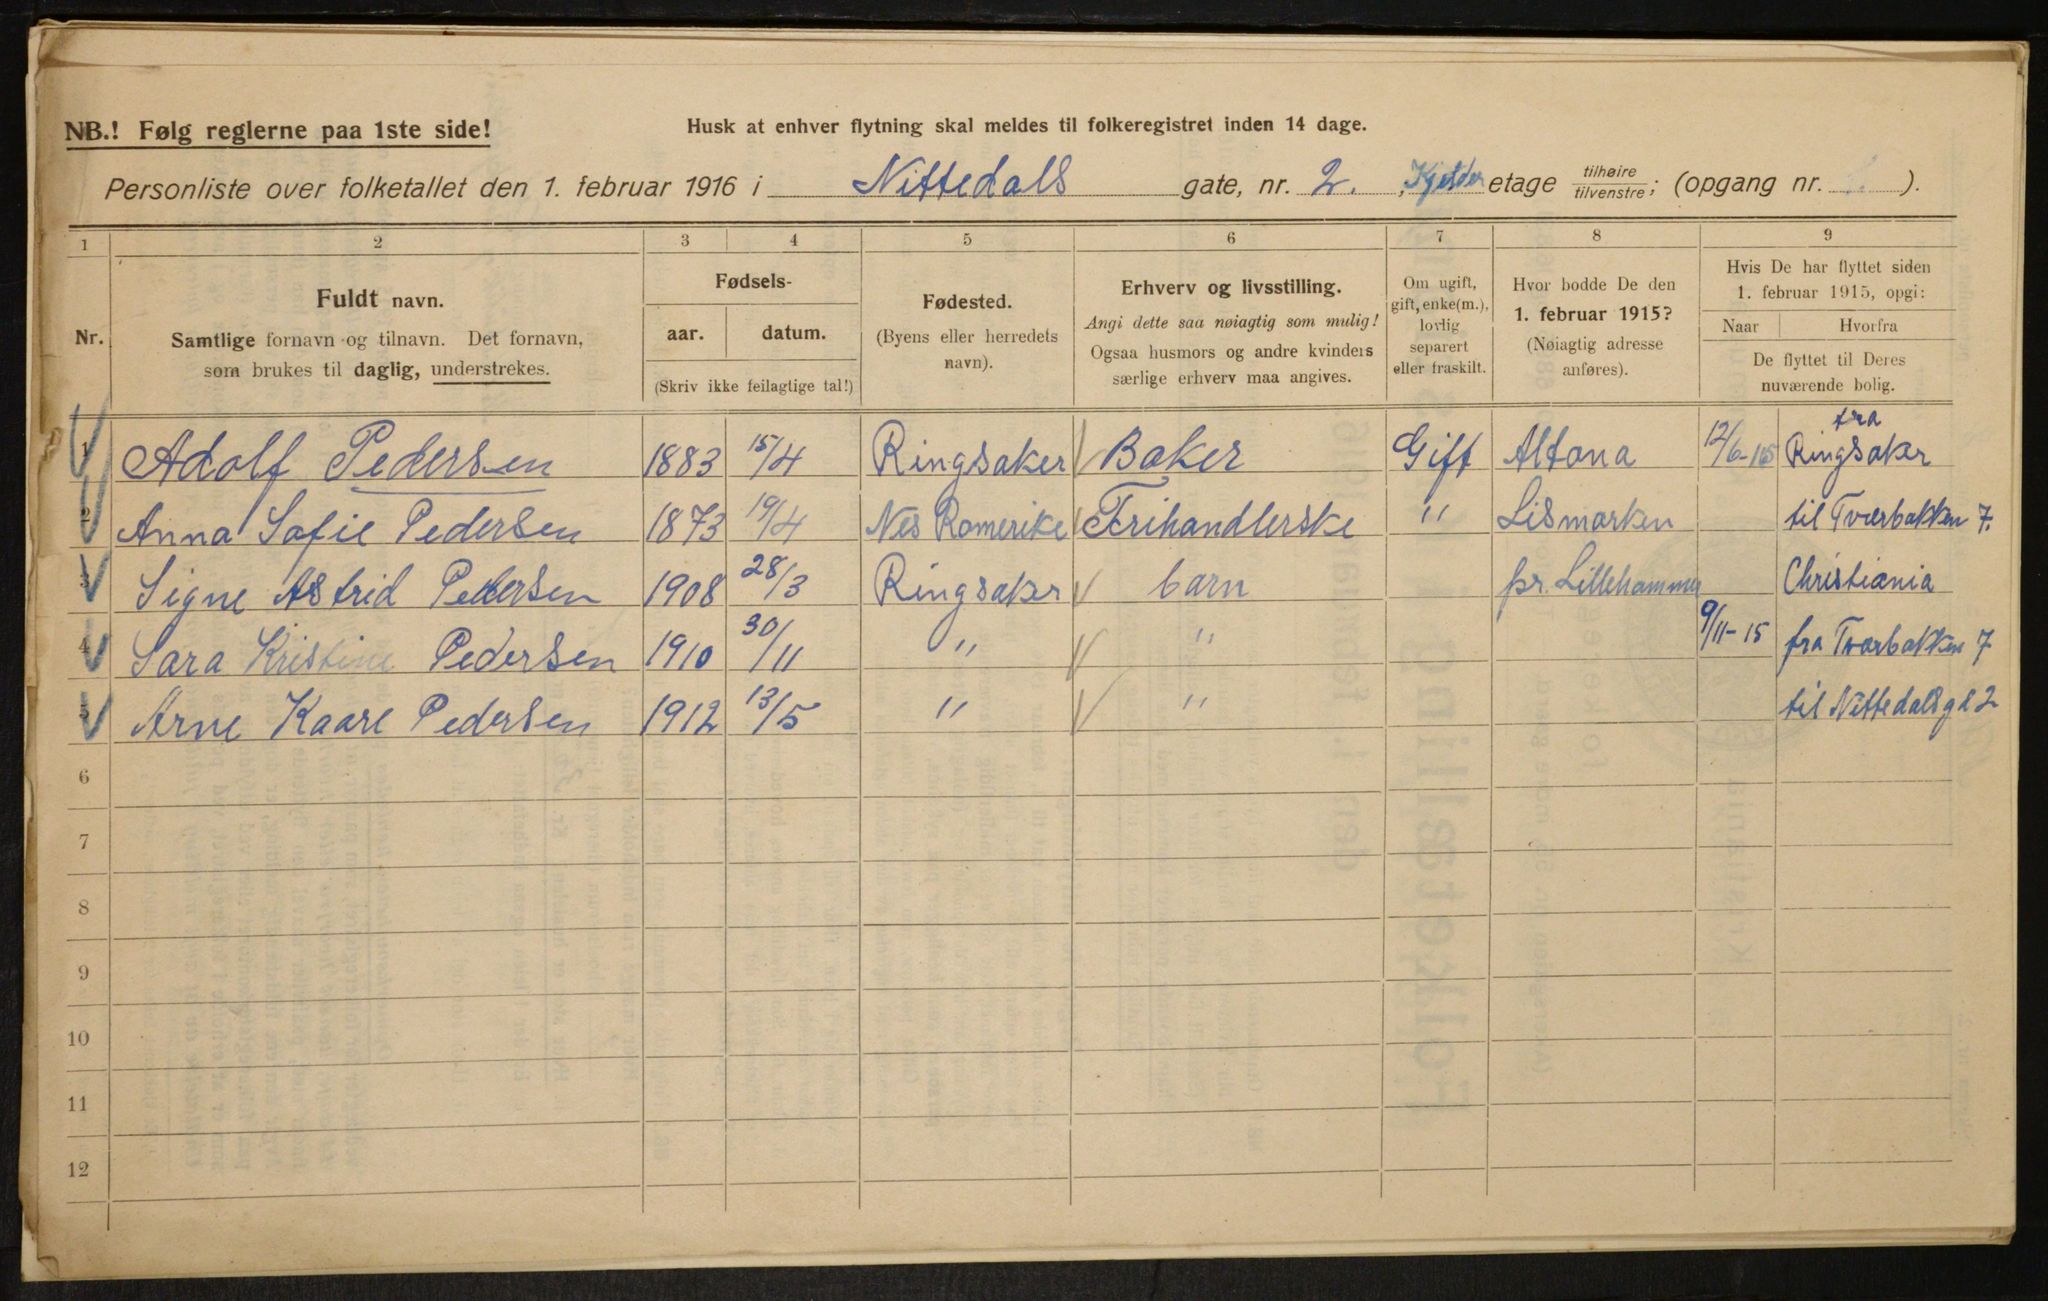 NB.! Følg reglerne paa 1ste side!
Husk at enhver flytning skal meldes til folkeregistret inden 14 dage.
Personliste over folketallet den 1. februar 1916 i Nittedals gate, nr. 2. , Kjelder etage tilhøire tilvenstre; (opgang nr. ).
1 2 3 4 5 6 7 8 9
Nr.
Fuldt navn.
Samtlige fornavn og tilnavn. Det fornavn,
som brukes til daglig, understrekes.
Fødsels-
aar. datum.
(Skriv ikke feilagtige tal!)
Fødested.
(Byens eller herredets
navn).
Erhverv og livsstilling.
Angi dette saa nøiagtig som mulig!
Ogsaa husmors og andre kvinders
særlige erhverv maa angives.
Om ugift,
gift, enke(m.),
lovlig
separert
eller fraskilt.
Hvor bodde De den
1. februar 1915?
(Nøiagtig adresse
anføres).
Hvis De har flyttet siden
1. februar 1915, opgi:
Naar Hvorfra
De flyttet til Deres
nuværende bolig.
1 Adolf Pedersen 1883 15/4 Ringsaker Baker Gift Altona 12/6-15 fra Ringsaker
2 Anna Sofie Pedersen 1873 19/4 Nes Romerike Frihandlerske " Lismarken til Tværbakken 7.
3 Signe Astrid Pedersen 1908 28/3 Ringsaker barn pr. Lillehammer Christiania
4 Sara Kristine Pedersen 1910 30/11 " " 9/11-15 fra Tværbakken 7
5 Arne Kaare Pedersen 1912 13/5 " " til Nittedalsgd 2
6
7
8
9
10
11
12